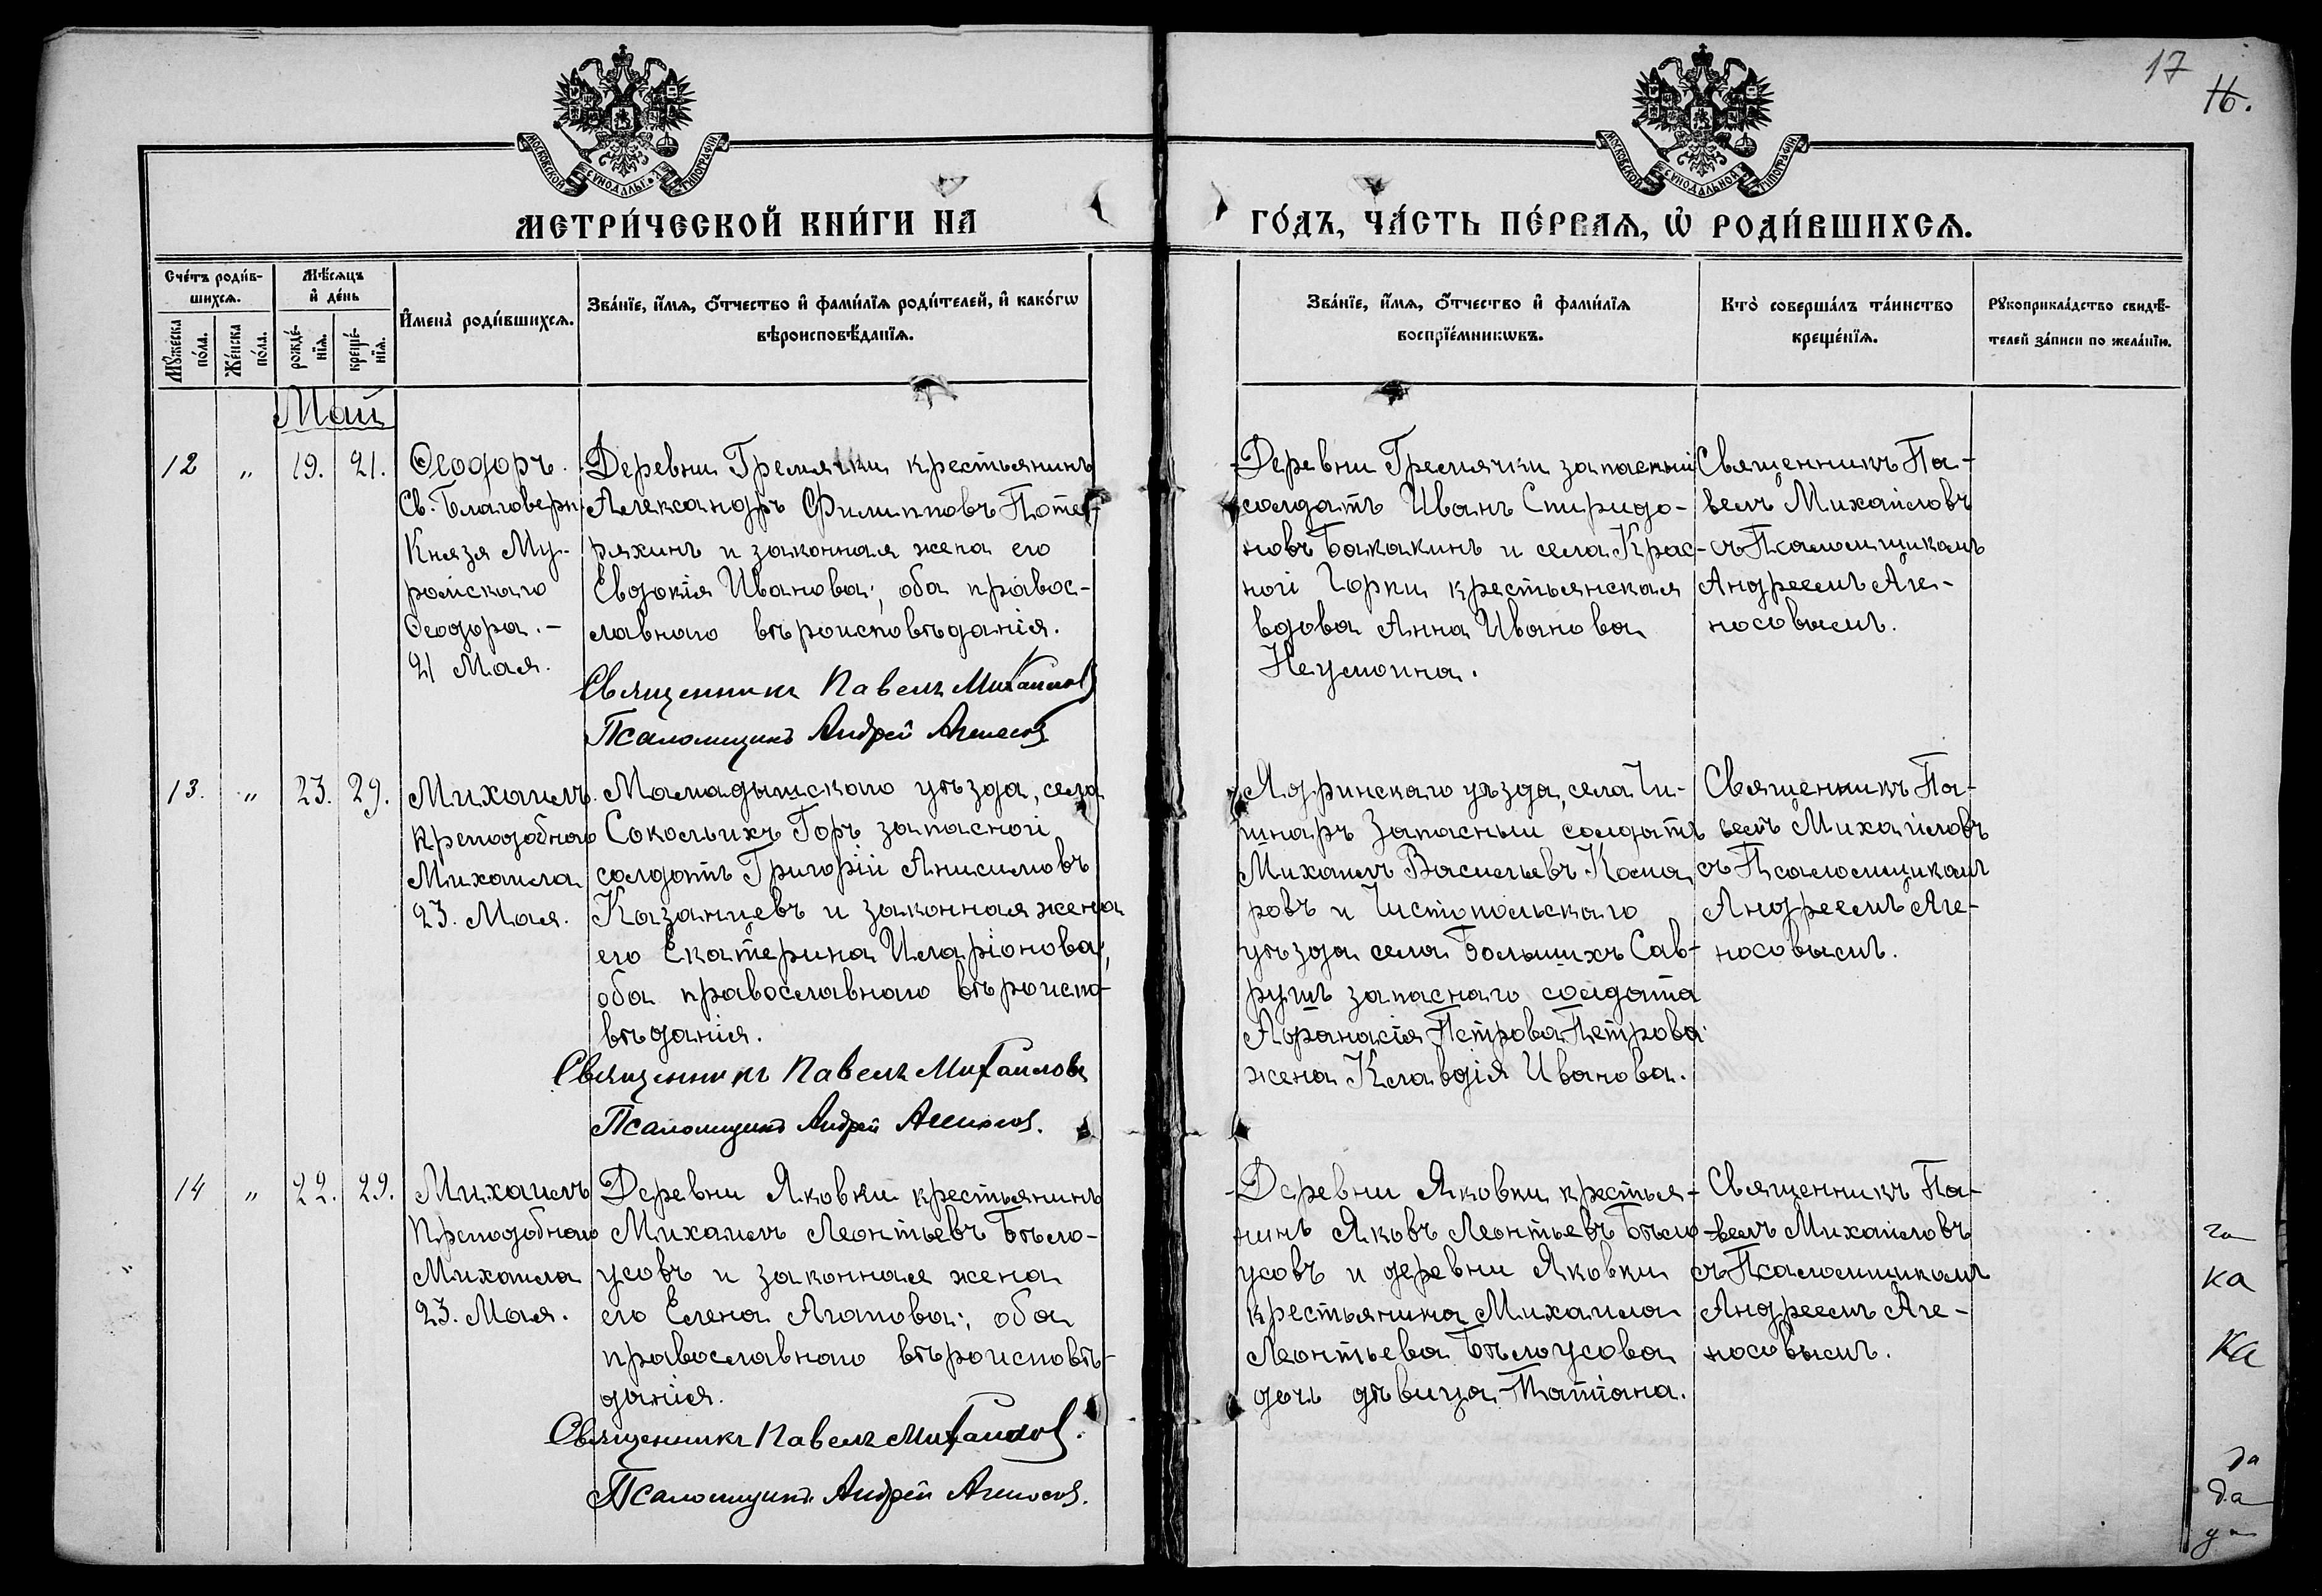 17
16.
МОСКОВСКОЙ СѴНОДАЛЬН. ТИПОГРАФІИ
МОСКОВСКОЙ СѴНОДАЛЬНОЙ ТИПОГРАФІИ
МЕТРИ́ЧЕСКОЙ КНИ́ГИ НА
ГО́ДЪ, ЧА́СТЬ ПЕ́РВАѦ, Ѡ҆ РОДИ́ВШИХСѦ.
Сче́тъ роди́в-
шихсѧ.
Мꙋ́жеска
по́ла.
Же́нска
по́ла.
Мѣ́сѧцъ
и҆ де́нь
рожде́-
нїѧ.
креще́-
нїѧ.
И҆мена̀ роди́вшихсѧ.
Зва́нїе, и҆́мѧ, ѻ҆́тчество и҆ фами́лїѧ роди́телей, и҆ како́гѡ
вѣроисповѣ́данїѧ.
Зва́нїе, и҆́мѧ, ѻ҆́тчество и҆ фами́лїѧ
воспрїе́мникѡвъ.
Кто̀ соверша́лъ та́инство
креще́нїѧ.
Рꙋкоприкла́дство свидѣ́-
телей за́писи по жела́нїю.
Май
12 „ 19. 21.
Ѳеодоръ.
Св. Благоверн.
Князя Му-
ромскаго
Ѳеодора. –
21 Мая.
Деревни Гремячки крестьянинъ
Александръ Филипповъ Поте-
ряхинъ и законная жена его
Евдокія Иванова; оба правос-
лавнаго вѣроисповѣданія.
Священникъ Павелъ Михаиловъ
Псаломщикъ Андрей Агеносовъ
Деревни Гремячки запасный
солдатъ Иванъ Спиридо-
новъ Бакакинъ и села Крас-
ной Горки крестьянская
вдова Анна Иванова
Неумоина.
Священникъ Па-
велъ Михайловъ
съ Псаломщикомъ
Андреемъ Аге-
носовымъ.
13. „ 23. 29.
Михаилъ.
Преподобнаго
Михаила
23. Мая.
Мамадышскаго уѣзда, села
Сокольихъ Горъ запасной
солдатъ Григорій Анисимовъ
Казанцевъ и законная жена
его Екатерина Иларіонова;
оба православнаго вѣроиспо-
вѣданія.
Священникъ Павелъ Михаиловъ
Псаломщикъ Андрей Агеносовъ.
Ядринскаго уѣзда, села Чи-
шнаръ запасный солдатъ
Михаилъ Васильевъ Кома
ровъ и Чистопольскаго
уѣзда села Большихъ Сав-
рушъ запаснаго солдата
Аѳанасія Петрова Петрова
жена Клавдія Иванова.
Священникъ Па-
велъ Михайловъ
съ Псаломщикомъ
Андреемъ Аге-
носовымъ.
14 „ 22. 29.
Михаилъ
Преподобнаго
Михаила
23. Мая.
Деревни Яковки крестьянинъ
Михаилъ Леонтьевъ Бѣло-
усовъ и законная жена
его Елена Агапова; оба
православнаго вѣроисповѣ-
данія.
Священникъ Павелъ Михаиловъ.
Псаломщикъ Андрей Агеносовъ.
Деревни Яковки крестья-
нинъ Яковъ Леонтьевъ Бѣло-
усовъ и деревни Яковки
крестьянина Михаила
Леонтьева Бѣлоусова
дочь дѣвица Татіана.
Священникъ Па-
велъ Михайловъ
съ Псаломщикомъ
Андреемъ Аге-
носовымъ.
га
ка
ка
да
да